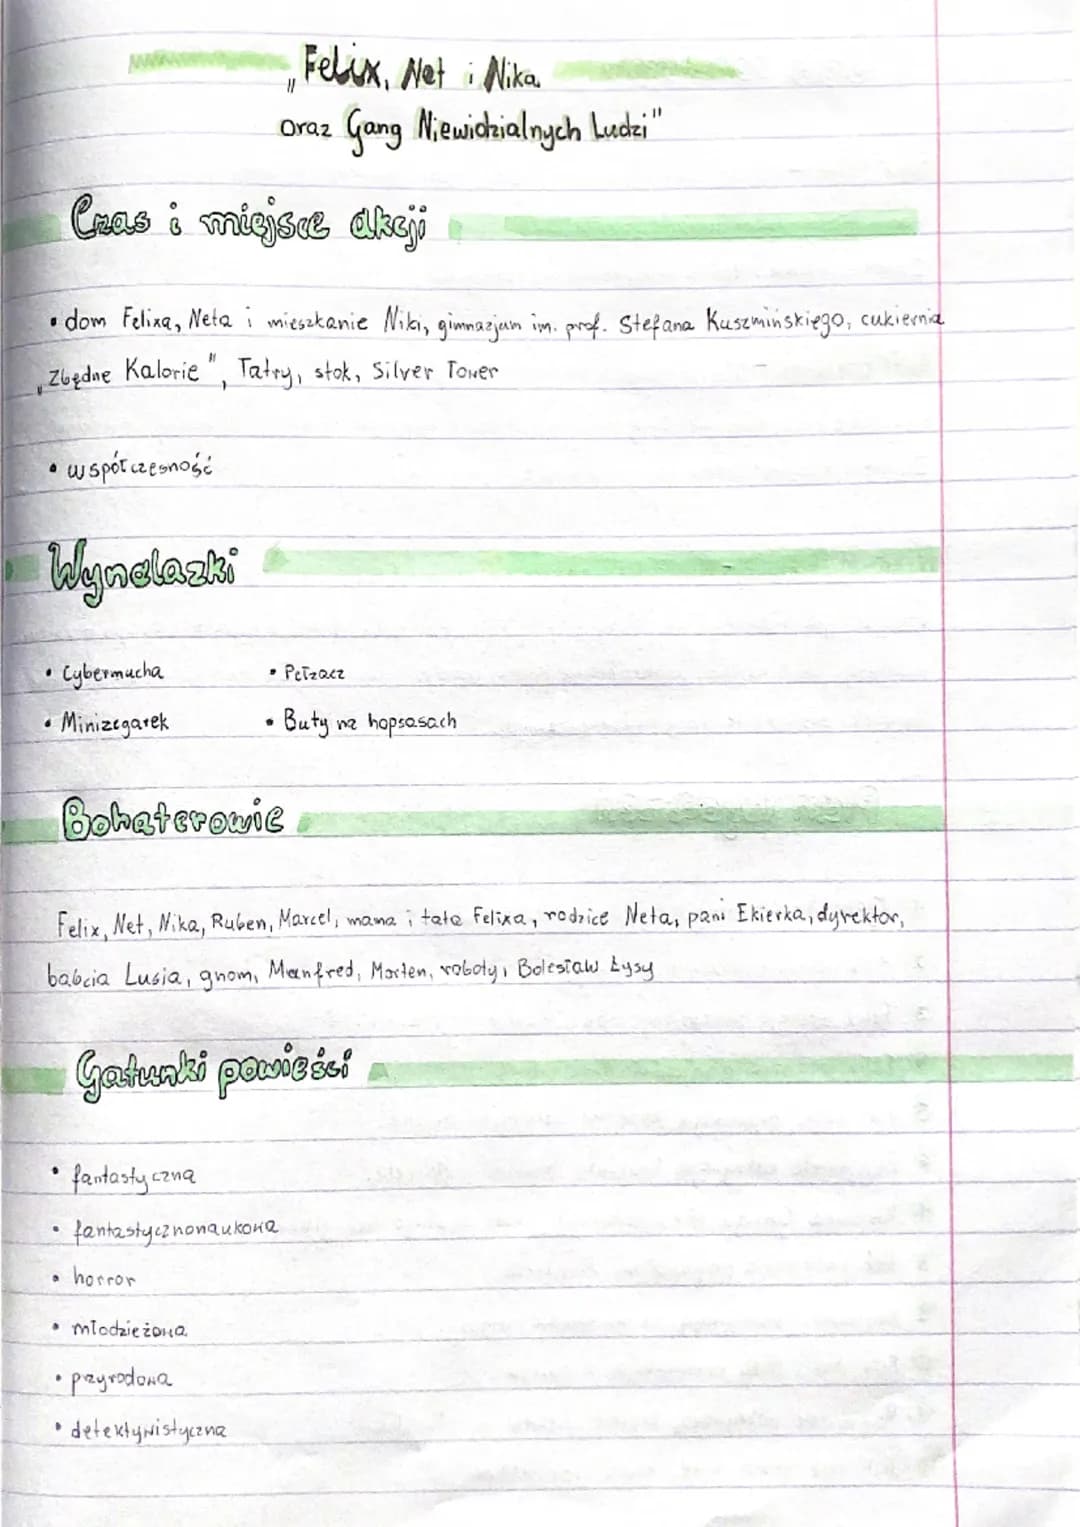 „Felix, Net i Nika
oraz Gang Niewidzialnych Ludzi"
Czas i miejsce akcji
• dom Felixa, Neta i mieszkanie Niki, gimnazjum im. prof. Stefana Kuszmińskiego, cukiernia
„Zbędne Kalorie", Tatry, stok, Silver Tower
• współczesność
Wynalazki
• Cybermucha • Pełzacz
• Minizegarek • Buty na hopsasach
Bohaterowie
Felix, Net, Nika, Ruben, Marcel, mama i tata Felixa, rodzice Neta, pani Ekierka, dyrektor,
babcia Lusia, gnom, Manfred, Morten, roboty, Bolesław Łysy
Gatunki powieści
• fantastyczna
• fantastycznonaukowa
• horror
• młodzieżowa
• przyrodowa
• detektywistyczna